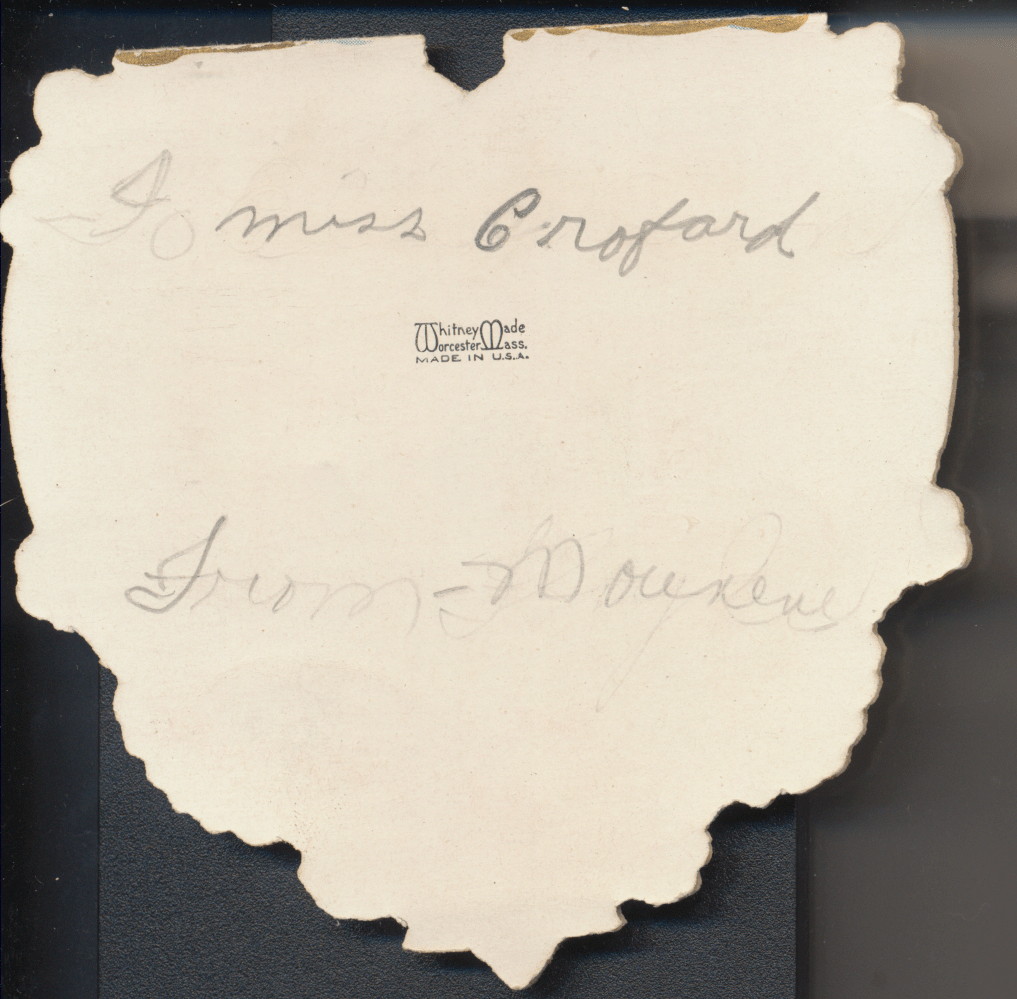 To miss Crofard
Whitney Made
Worcester Mass.
MADE IN U.S.A.
From -